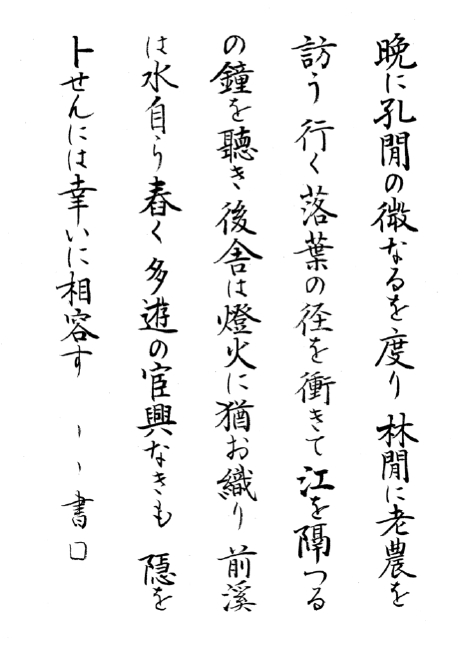 晩に孔閒の微なるを度り 林閒に老農を
訪う 行く落葉の径を衝きて 江を隔つる
の鐘を聴き 後舎は燈火に猶お織り 前溪
は水自ら舂く 多遊の宦興なきも 隠を
卜せんには幸いに相容す 、、書 口